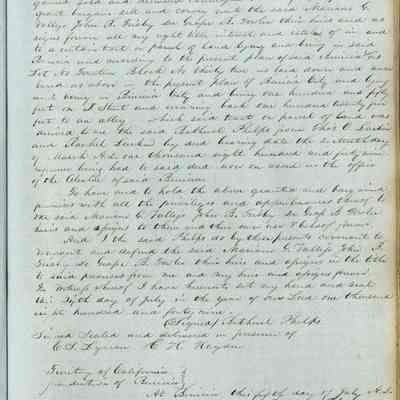 grant bargain sell and convey unto the said Marians G.
Tallep John B. Frisby De Grafe B. Fowler their heirs and as
signs forever all my right title interest and estate of in and
to a certain tract or parcel of land lying and being in said
Benicia and according to the present plan of said Benicia
Lot No Fourteen Block No thirty two as laid down and num
bered as above in the present plan of Benicia City and lying
and being in Benicia City and being one hundred and fifty
feet on I Street and running back one hundred twenty five
feet to an alley which said tract or parcel of land was
deeded to me the said Bethuel Phelps from Thos O Larkin
and Rachel Larkin by deed bearing date the seventeenth day
of March A.D. one thousand eight hundred and forty nine
reference being had to said deed now on record in the office
of the Alcalde of said Benicia
To have and to hold the above granted and bargained
premises with all the privileges and appurtenances thereof to
the said Marians G. Tallep John B. Frisby De Grafe B. Fowler
heirs and assigns to them and their own use & behoof forever.
And I the said Phelps do by these presents covenant to
warrant and defend the said Marians G. Tallep John B.
Frisby De Grafe B. Fowler their heirs and assigns in the title
to said premises from me and my heirs and assigns forever.
In witness whereof I have hereunto set my hand and seal
this Fifth day of July in the year of our Lord one thousand
eight hundred and forty nine.
(Signed) Bethuel Phelps
Signed Sealed and delivered in presence of
C. S. Lyman C. H. Hayden
Territory of California }
jurisdiction of Benicia }
At Benicia this fifth day of July A.D.